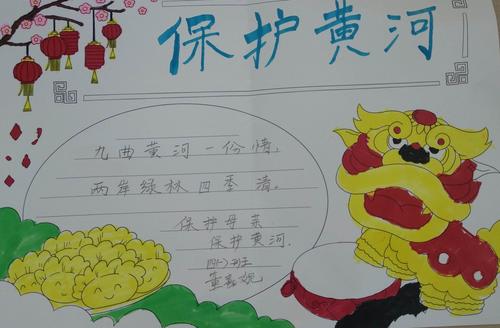 保护黄河
九曲黄河一份情,
两岸绿林四季清。
保护母亲
保护黄河.
四(一)班